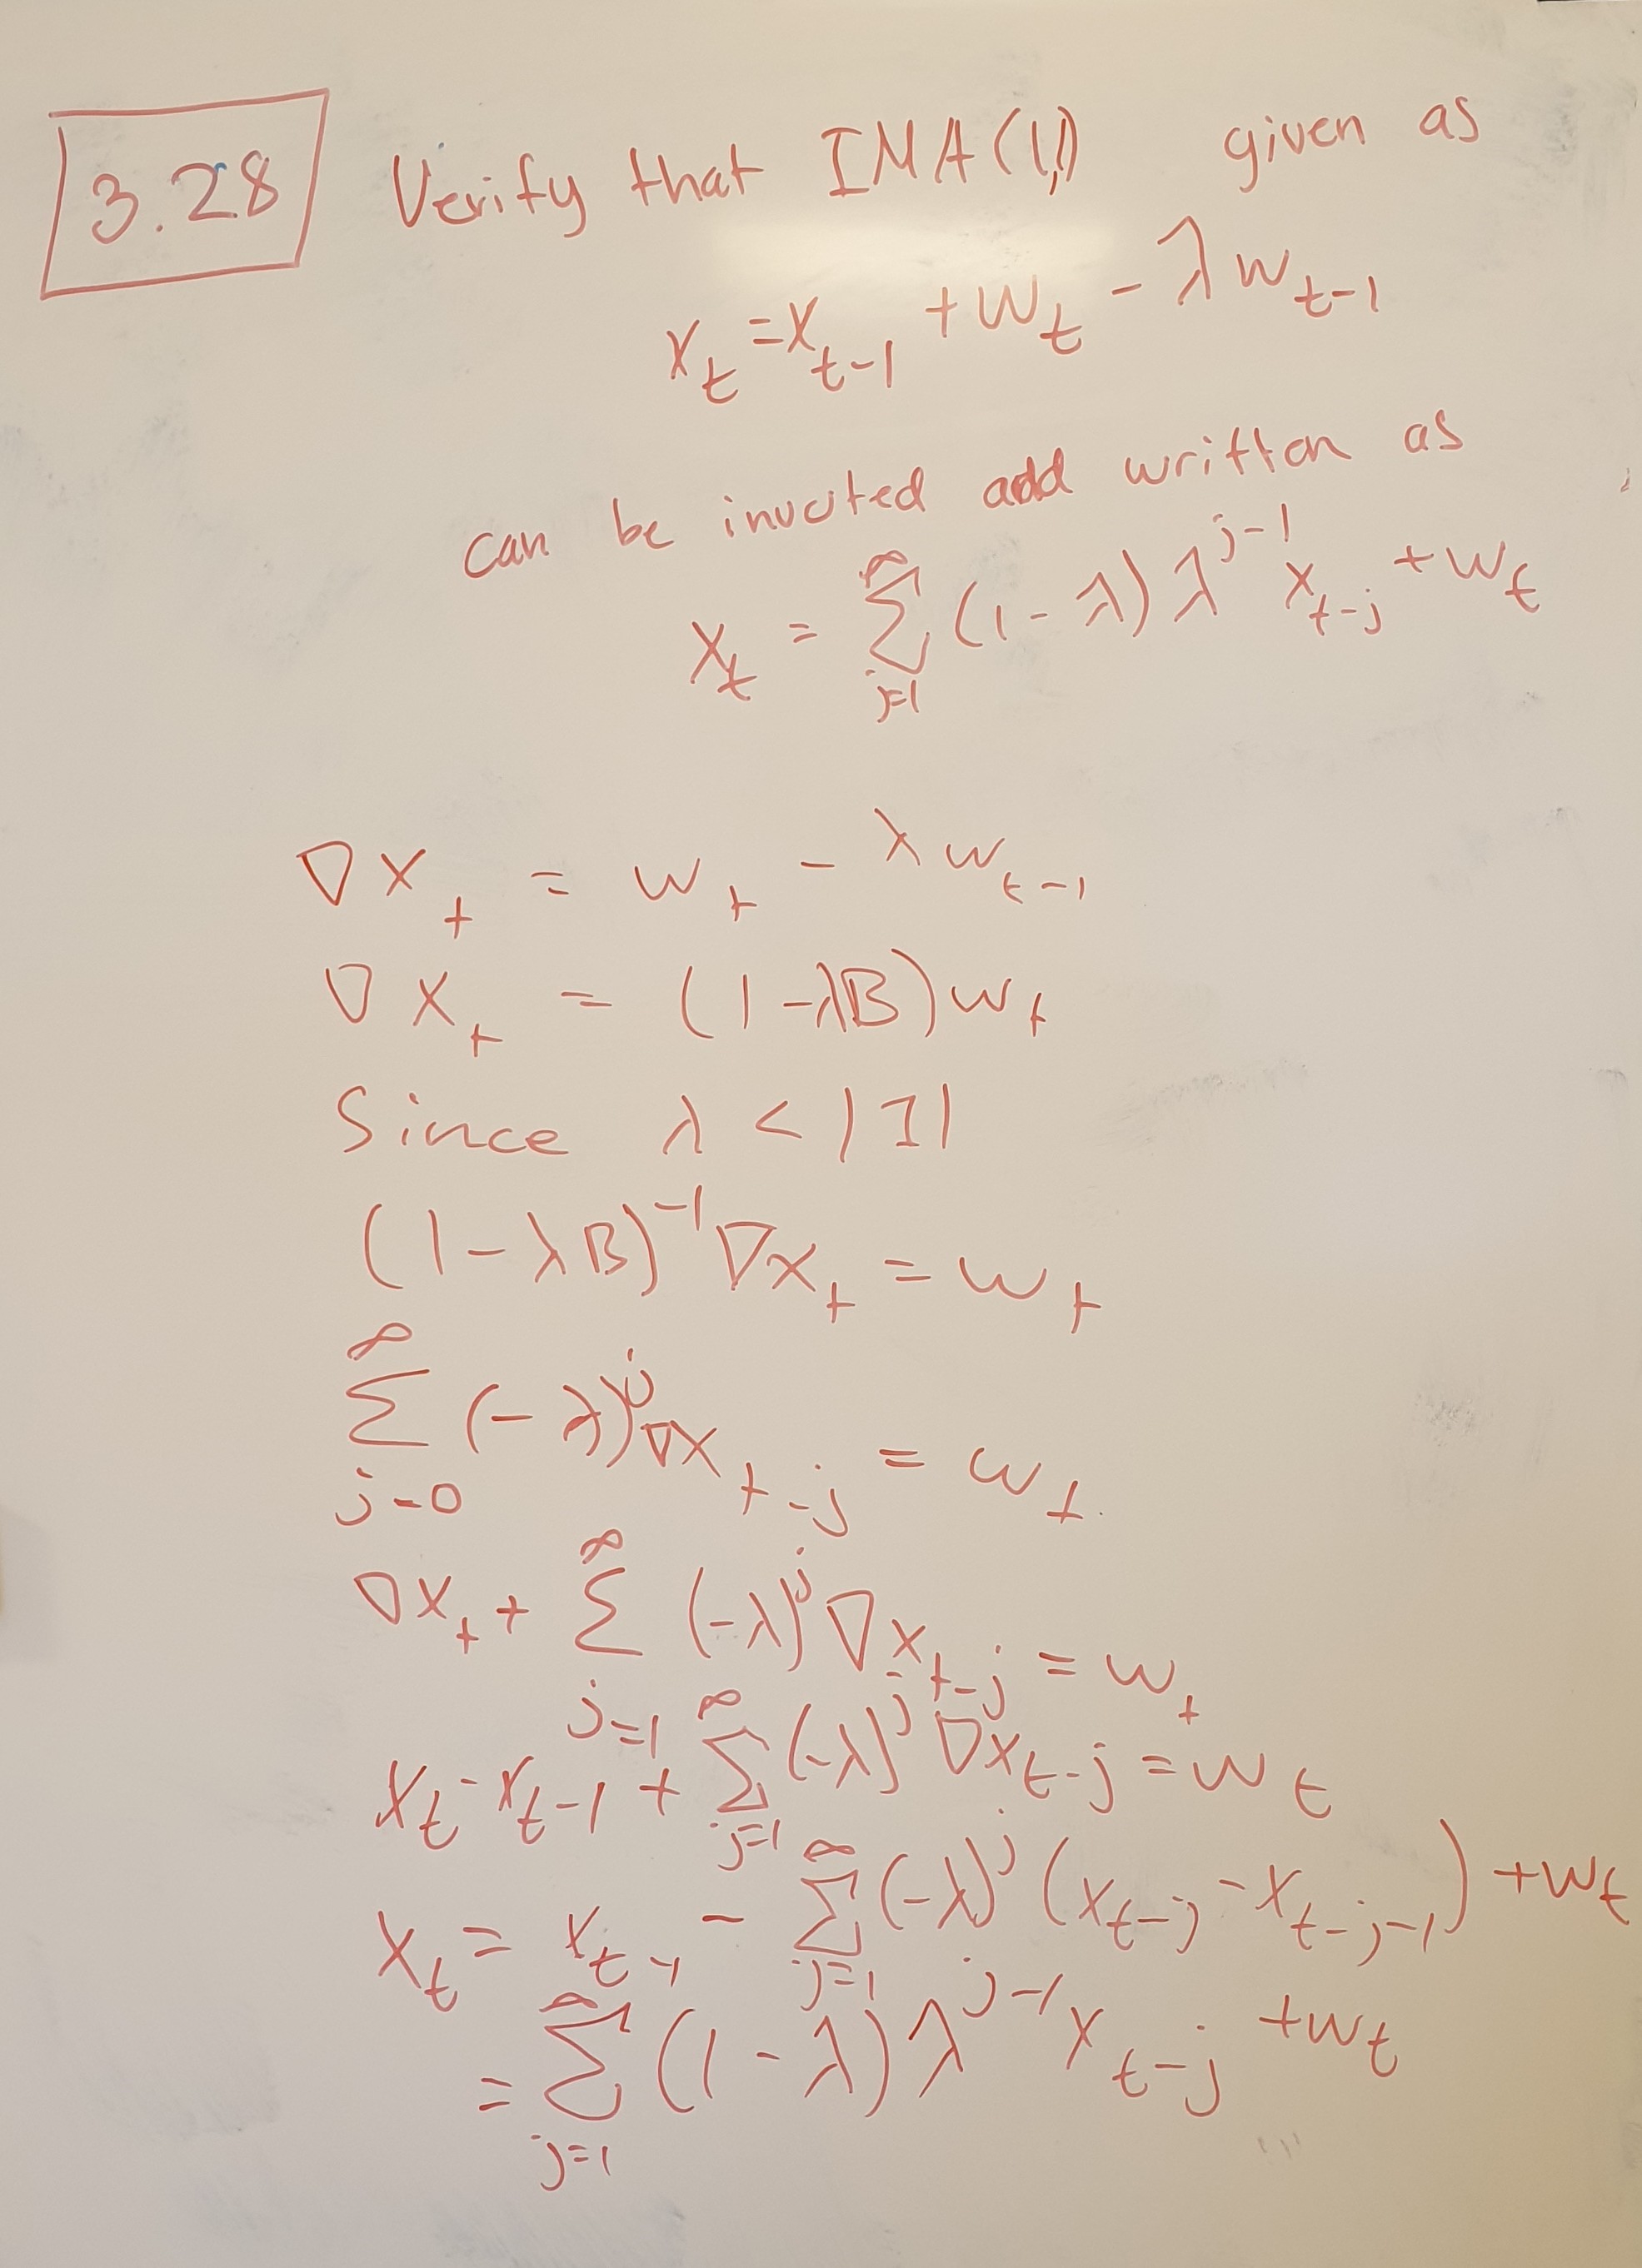 3.28 Verify that IMA(1,1) given as
x_t = x_{t-1} + w_t - λ w_{t-1}
can be inverted add written as
x_t = ∑_{j=1}^{∞} (1-λ) λ^{j-1} x_{t-j} + w_t
∇x_t = w_t - λ w_{t-1}
∇x_t = (1-λB) w_t
Since λ < |1|
(1-λB)^{-1} ∇x_t = w_t
∑_{j=0}^{∞} (-λ)^j ∇x_{t-j} = w_t
∇x_t + ∑_{j=1}^{∞} (-λ)^j ∇x_{t-j} = w_t
x_t - x_{t-1} + ∑_{j=1}^{∞} (-λ)^j ∇x_{t-j} = w_t
x_t = x_{t-1} - ∑_{j=1}^{∞} (-λ)^j (x_{t-j} - x_{t-j-1}) + w_t
= ∑_{j=1}^{∞} (1-λ) λ^{j-1} x_{t-j} + w_t